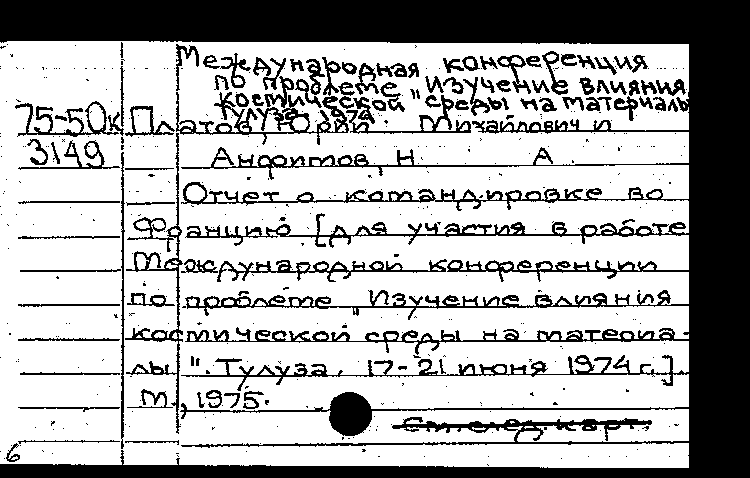 Международная конференция
по проблеме "Изучение влияния
космической среды на материалы"
Тулуза, 1974.
75-50к Платов, Юрий Михайлович и
3149 Анфимов, Н А
Отчет о командировке во
Францию [для участия в работе
Международной конференции
по проблеме "Изучение влияния
космической среды на материа-
лы". Тулуза. 17-21 июня 1974 г.].
М., 1975.
См. след. карт.
6